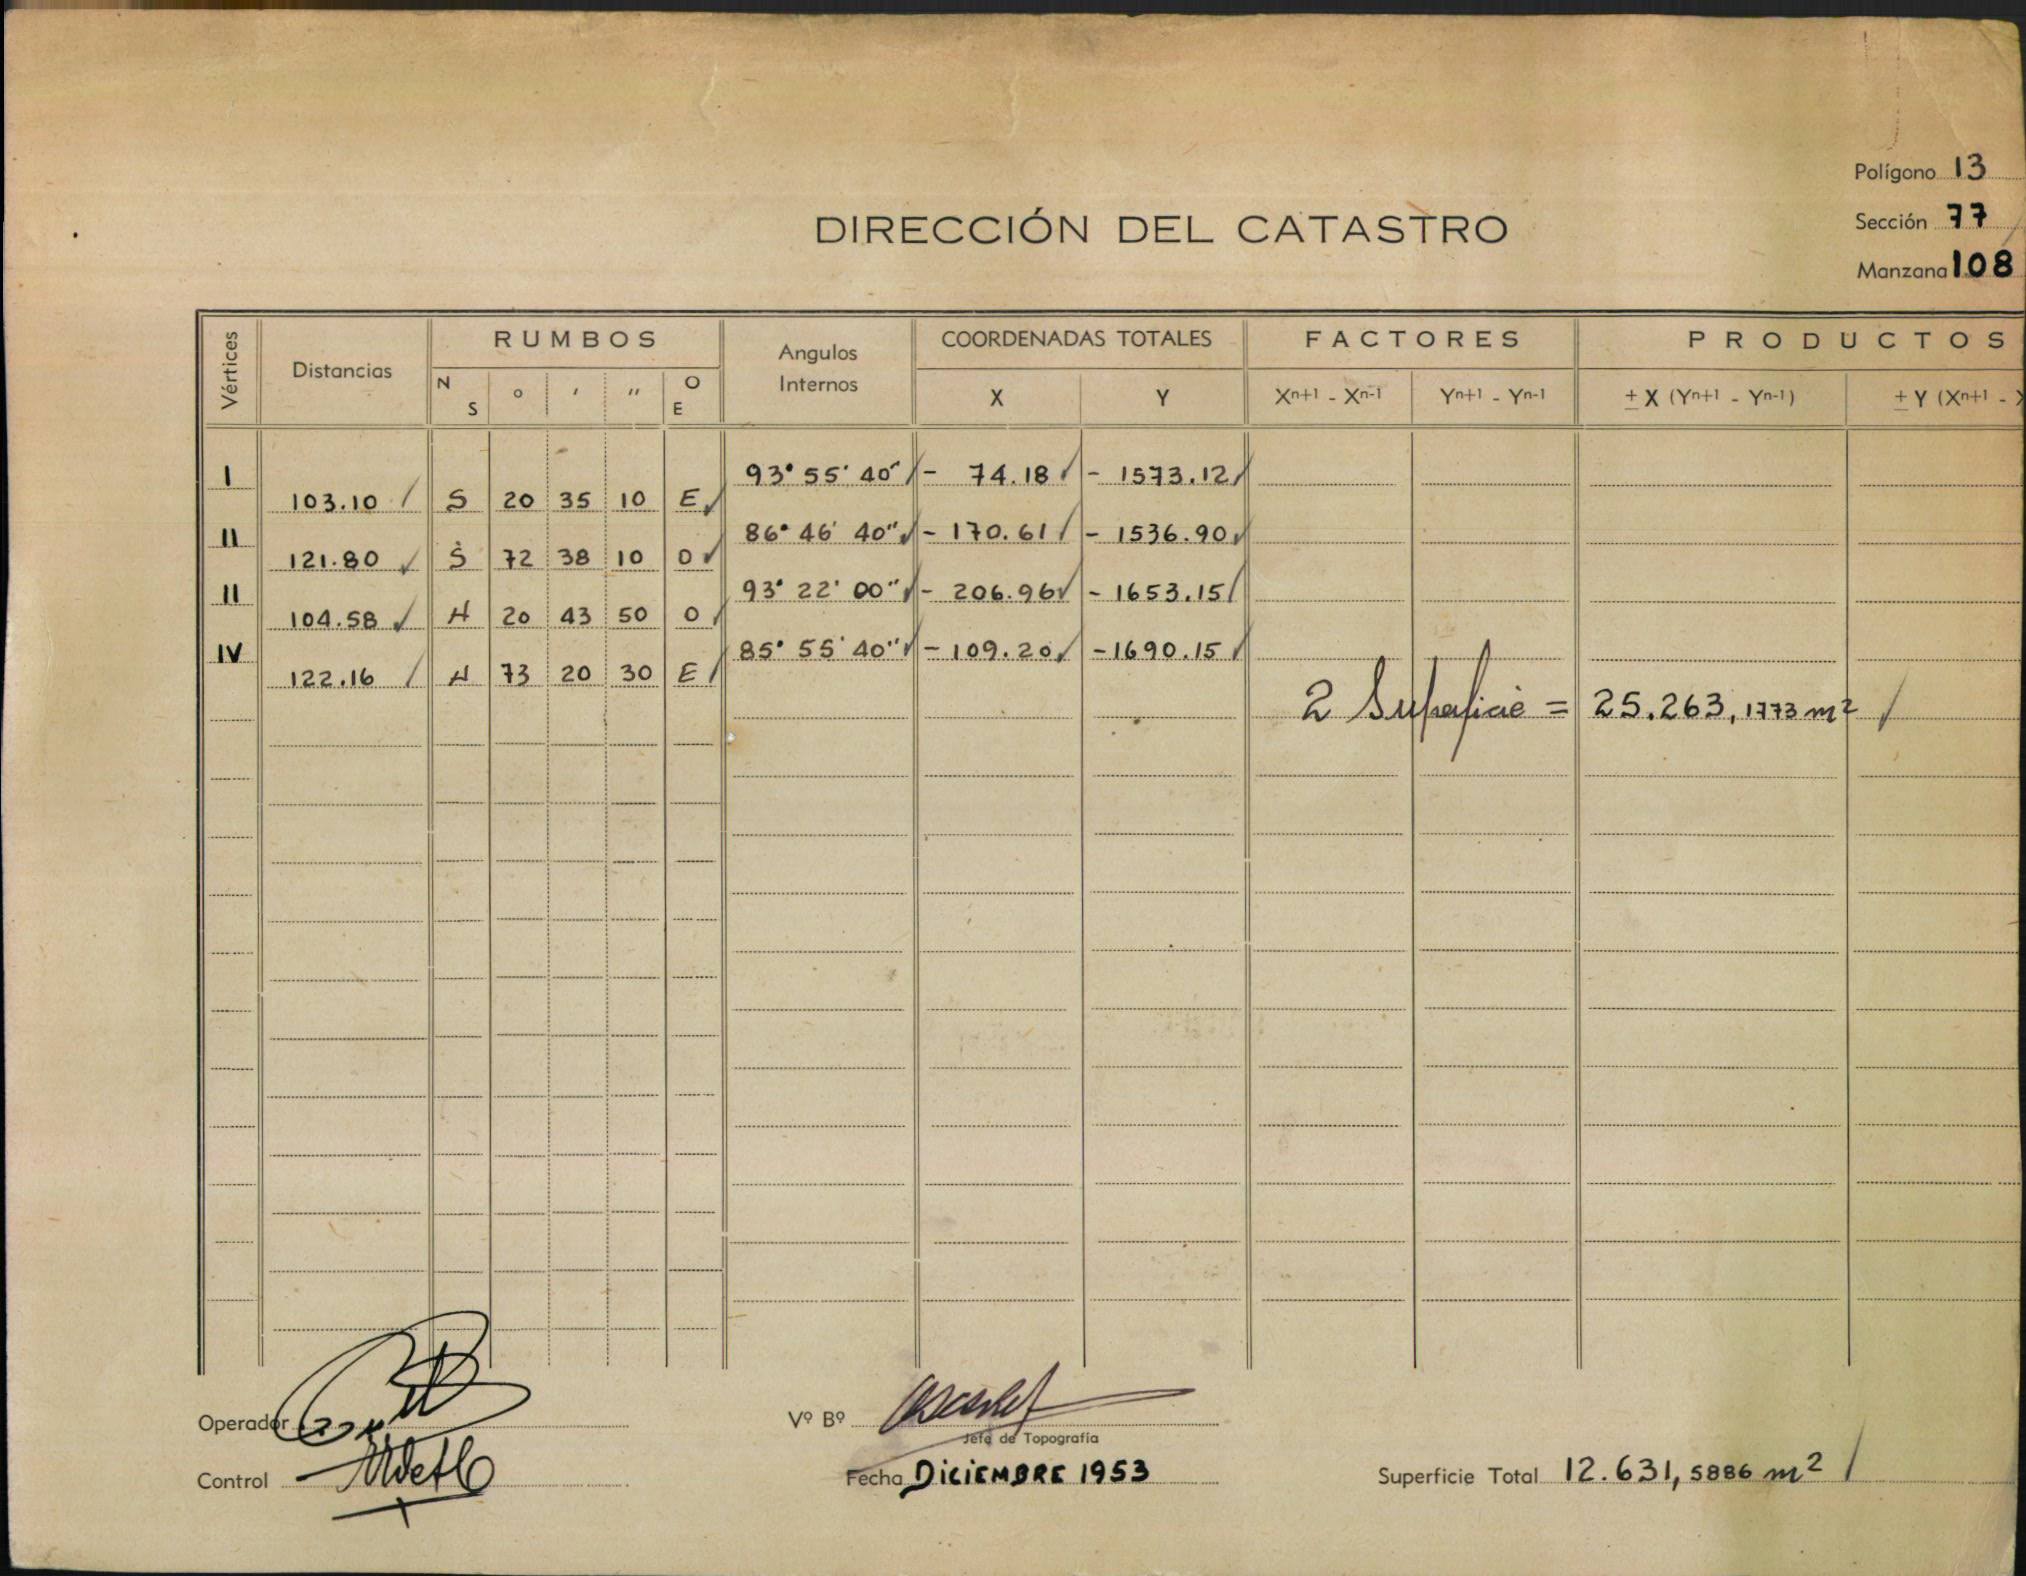 Polígono 13
DIRECCIÓN DEL CATASTRO
Sección 77
Manzana 108
Vértices Distancias RUMBOS Angulos Internos COORDENADAS TOTALES FACTORES PRODUCTOS
N S ° ' '' O E X Y Xn+1 - Xn-1 Yn+1 - Yn-1 ± X (Yn+1 - Yn-1) ± Y (Xn+1 -
I 93° 55' 40" - 74.18 - 1573.12
103.10 S 20 35 10 E
II 86° 46' 40" - 170.61 - 1536.90
121.80 S 72 38 10 O
II 93° 22' 00" - 206.96 - 1653.15
104.58 N 20 43 50 O
IV 85° 55' 40" - 109.20 - 1690.15
122.16 N 73 20 30 E
2 Superficie = 25.263,1773 m²
Operador
Vº Bº
Jefe de Topografía
Control
Fecha DICIEMBRE 1953
Superficie Total 12.631,5886 m²